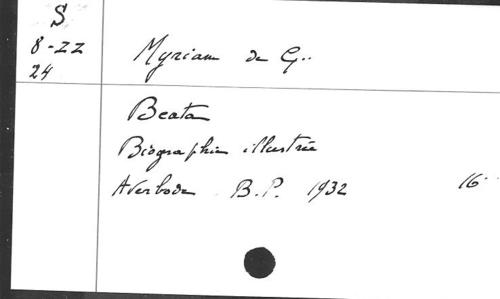 S
8-22
24
Myriam de G..
Beata
Biographie illustrée
Averbode B.P. 1932 16°